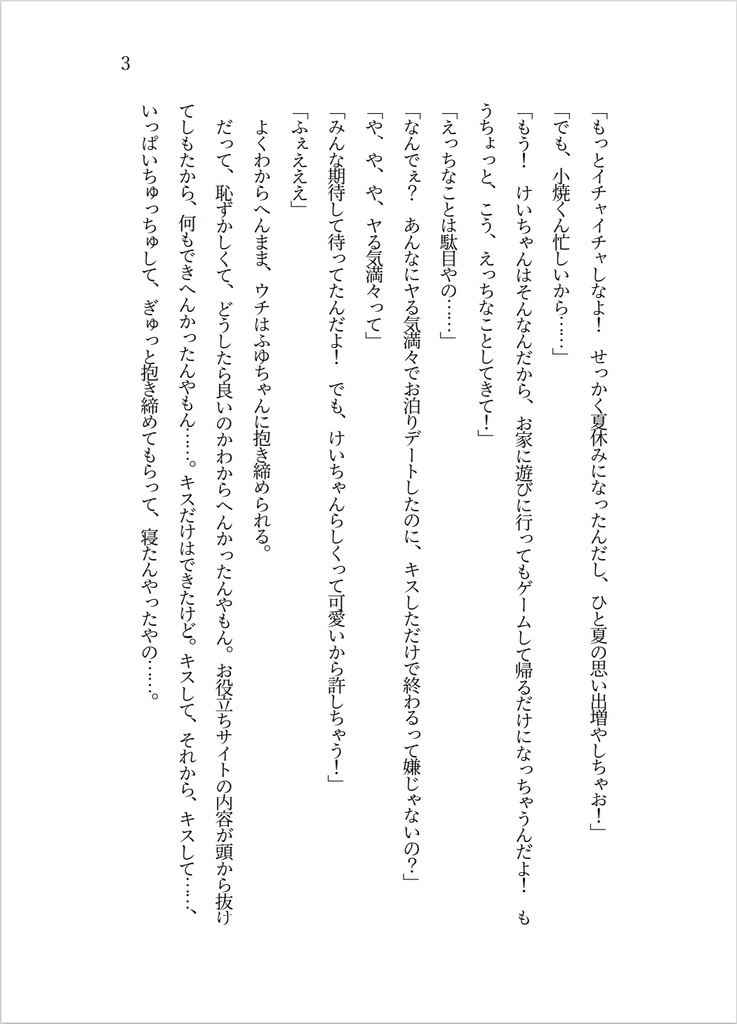 3
「もっとイチャイチャしなよ！　せっかく夏休みになったんだし、ひと夏の思い出増やしちゃお！」
「でも、小焼くん忙しいから……」
「もう！　けいちゃんはそんなんだから、お家に遊びに行ってもゲームして帰るだけになっちゃうんだよ！　も
うちょっと、こう、えっちなことしてきて！」
「えっちなことは駄目やの……」
「なんでぇ？　あんなにヤる気満々でお泊りデートしたのに、キスしただけで終わるって嫌じゃないの？」
「や、や、や、ヤる気満々って」
「みんな期待して待ってたんだよ！　でも、けいちゃんらしくって可愛いから許しちゃう！」
「ふぇえええ」
　よくわからへんまま、ウチはふゆちゃんに抱き締められる。
　だって、恥ずかしくて、どうしたら良いのかわからへんかったんやもん。お役立ちサイトの内容が頭から抜け
てしもたから、何もできへんかったんやもん……。キスだけはできたけど。キスして、それから、キスして……、
いっぱいちゅっちゅして、ぎゅっと抱き締めてもらって、寝たんやったやの……。